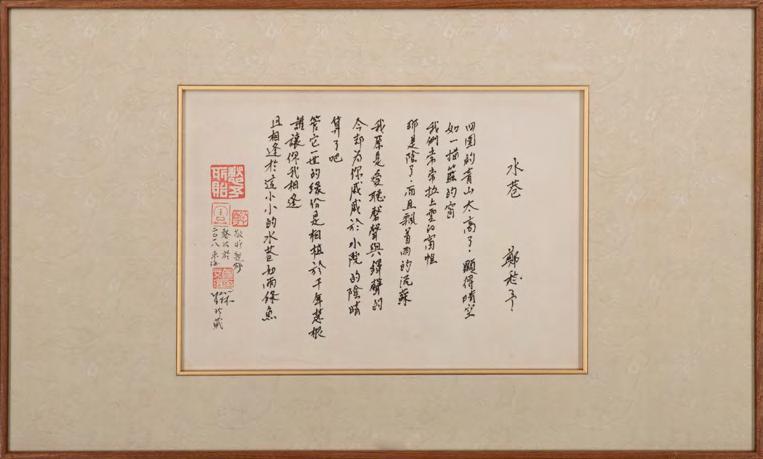 水巷
鄭愁予
四圍的青山太高了，顯得晴空
如一描藍的窗
我們常常拉上雲的窗帷
那是陰了，而且飄着雨的流蘇
我原是愛聽磬聲與鐸聲的
今却為你戚戚於小院的陰晴
算了吧
管它一世的緣份是相植於千年慧根
誰讓你我相逢
且相逢於這小小的水巷如兩條魚
愁予
二〇一八
珍藏